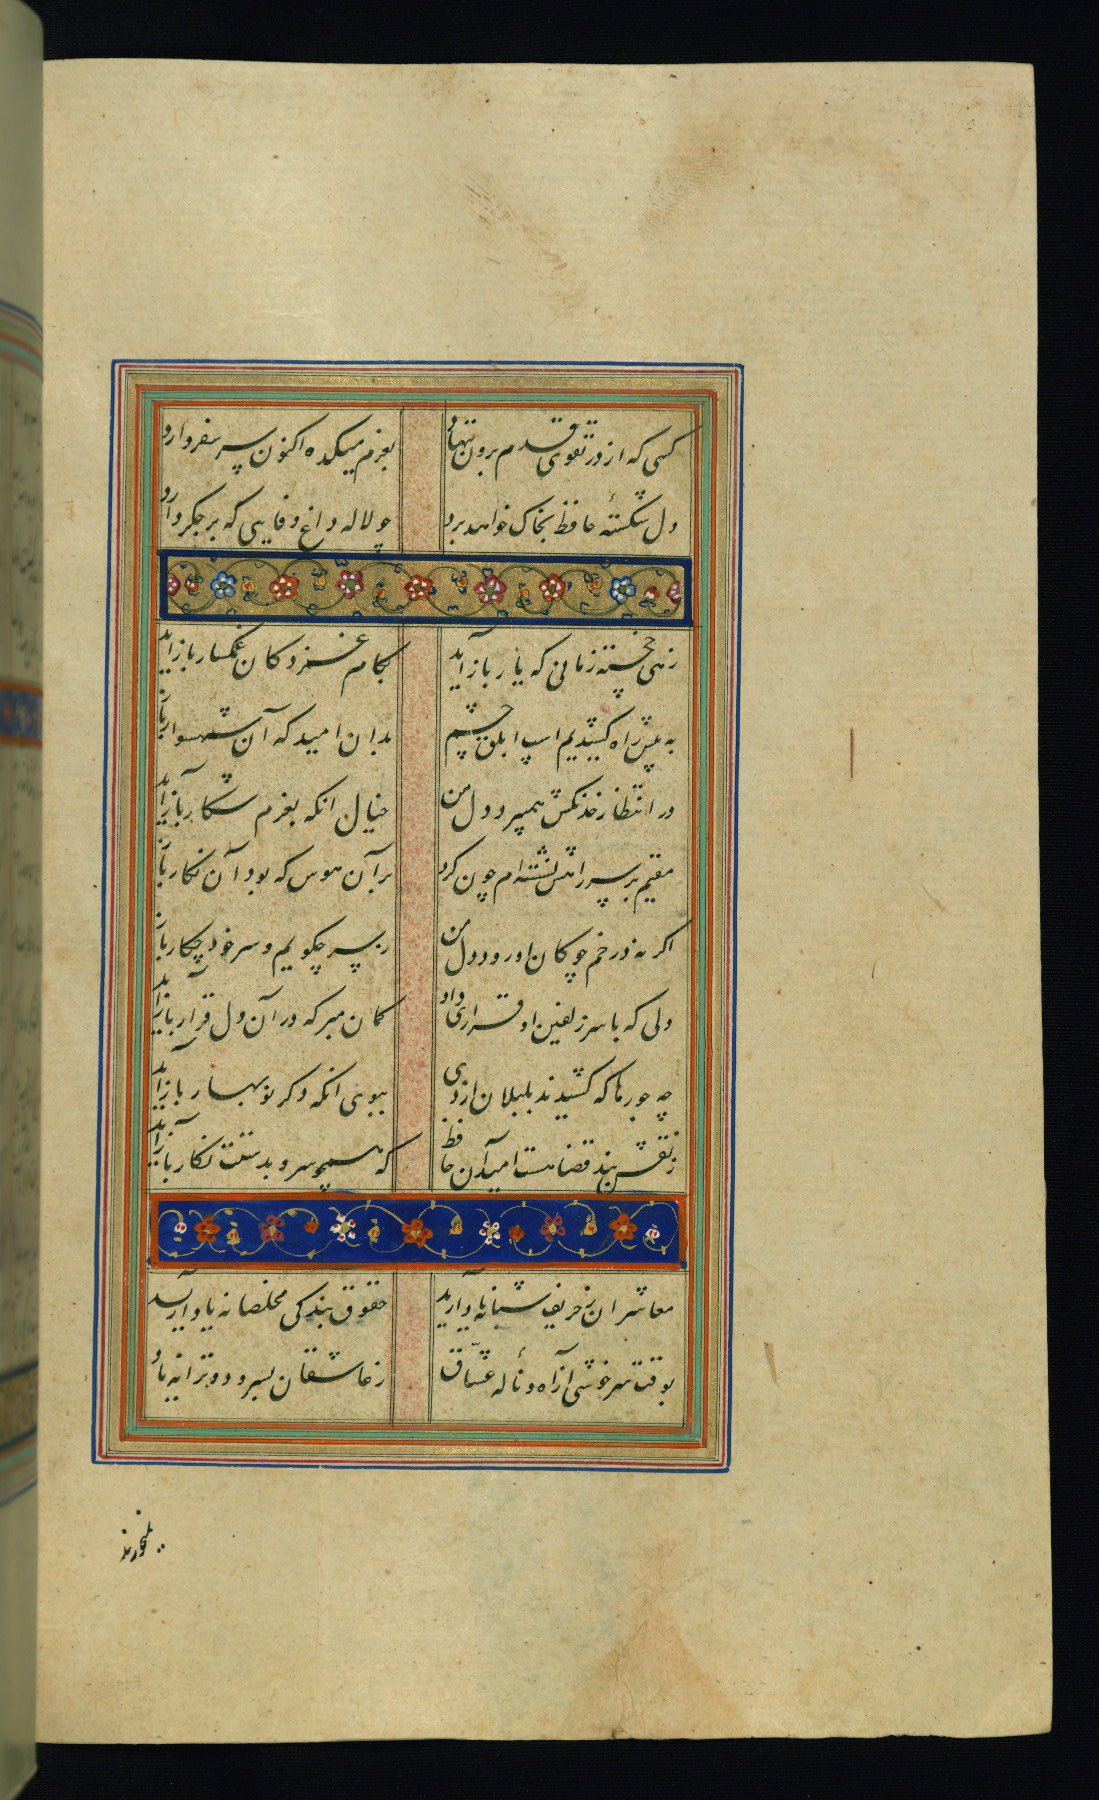 کسی که از در تقوی قدم برون ننهاد
بعزم میکده اکنون سر سفر دارد
دل شکستهٔ حافظ بخاک خواهد برد
چو لاله داغ وفایی که بر جکر دارد
زهی خجسته زمانی که یار بازآید
بکام غمزدکان غمکسار بازآید
به پیش راه کشیدیم اسپ ابلق چشم
بدان امید که آن شهسوار باز
در انتظار خدنکش همیپرد دل من
خیال انکه بعزم شکار بازآید
مقیم بر سر راهش نشسته ام چون کرد
برآن هوس که بود آن نکار باز
اکر نه در خم چوکان او رود دل من
ز سر چکویم و سر خود چکار باز
دلی که با سر زلفین او قراری داد
کمان مبر که در آن دل قرار بازآید
چه جورها که کشیدند بلبلان از دی
ببوی انکه دکر نوبهار بازآید
ز نقش بند قضا هست امید آن حافظ
که همچو سرو بدستت نکار بازآید
معاشران ز حریف شبانه یاد آرید
حقوق بندکی مخلصانه یاد آرید
بوقت سرخوشی از آه و نالهٔ عشاق
ز عاشقان بسرود و ترانه یاد